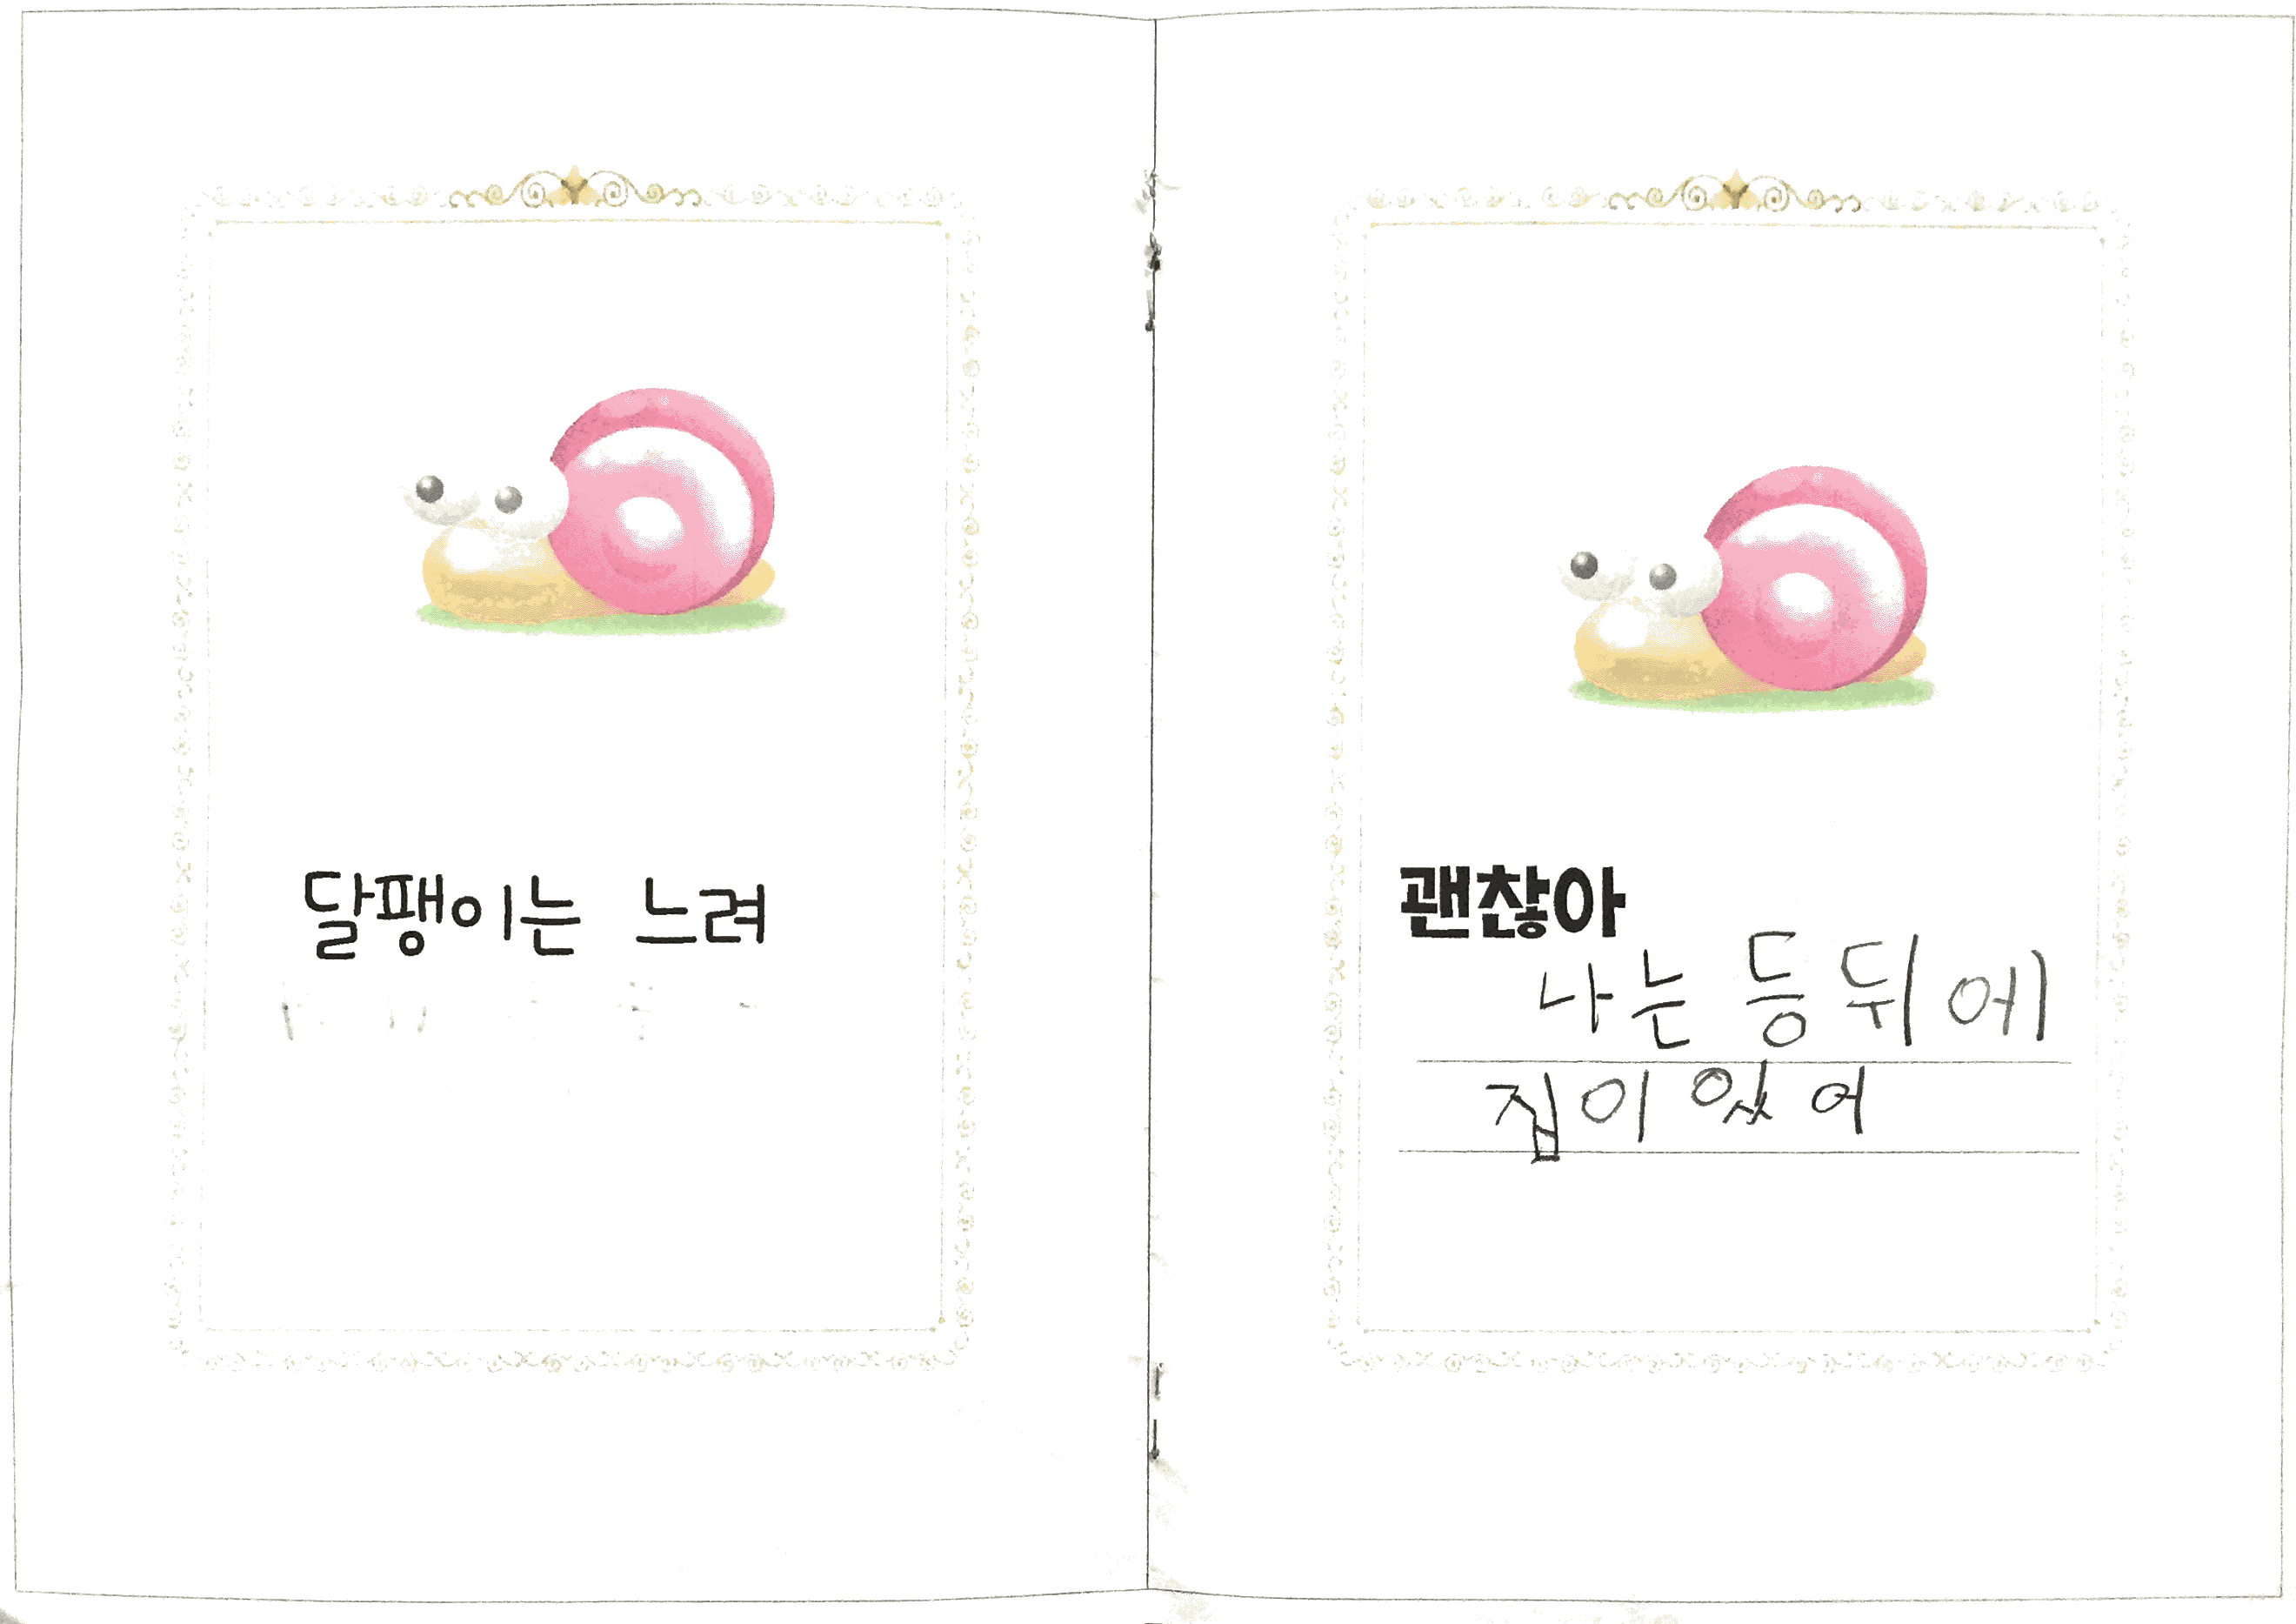 달팽이는 느려
괜찮아
나는 등뒤에
집이 있어